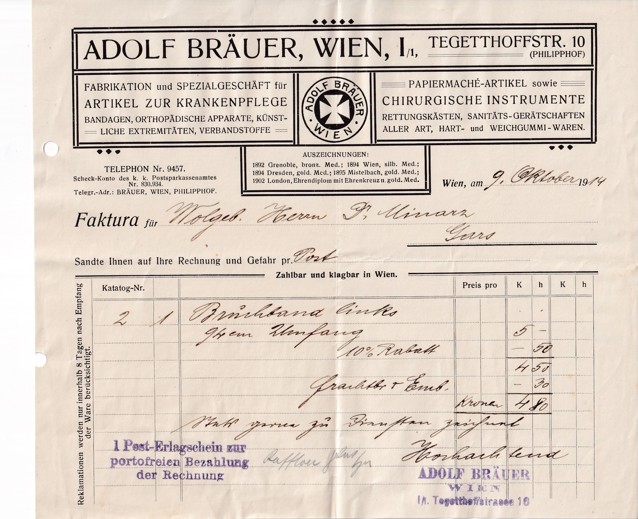 ADOLF BRÄUER, WIEN, I/1, TEGETTHOFFSTR. 10
(PHILIPPHOF)
FABRIKATION und SPEZIALGESCHÄFT für
ARTIKEL ZUR KRANKENPFLEGE
BANDAGEN, ORTHOPÄDISCHE APPARATE, KÜNST-
LICHE EXTREMITÄTEN, VERBANDSTOFFE
ADOLF BRÄUER
WIEN
PAPIERMACHÉ-ARTIKEL sowie
CHIRURGISCHE INSTRUMENTE
RETTUNGSKÄSTEN, SANITÄTS-GERÄTSCHAFTEN
ALLER ART, HART- und WEICHGUMMI-WAREN.
AUSZEICHNUNGEN:
1892 Grenoble, bronz. Med.; 1894 Wien, silb. Med.;
1894 Dresden, gold. Med.; 1895 Mistelbach, gold. Med.;
1902 London, Ehrendiplom mit Ehrenkreuz u. gold. Med.
TELEPHON Nr. 9457.
Scheck-Konto des k. k. Postsparkassenamtes
Nr. 830.934.
Telegr.-Adr.: BRÄUER, WIEN, PHILIPPHOF.
Wien, am 9. Oktober 1914
Faktura für Wolgeb. Herrn Dr Minarz
Gars
Sandte Ihnen auf Ihre Rechnung und Gefahr pr. Post
Zahlbar und klagbar in Wien.
Reklamationen werden nur innerhalb 8 Tagen nach Empfang
der Ware berücksichtigt.
Katalog-Nr. Preis pro K h K h
2 1 Bruchband links
94 cm Umfang 5 -
10% Rabatt - 50
4 50
Frachtbr + Emb. - 30
Kronen 4 80
Stets gerne zu Diensten zeichnet
Hochachtend
1 Post-Erlagschein zur
portofreien Bezahlung
der Rechnung
ADOLF BRÄUER
WIEN
I/1. Tegetthoffstrasse 10